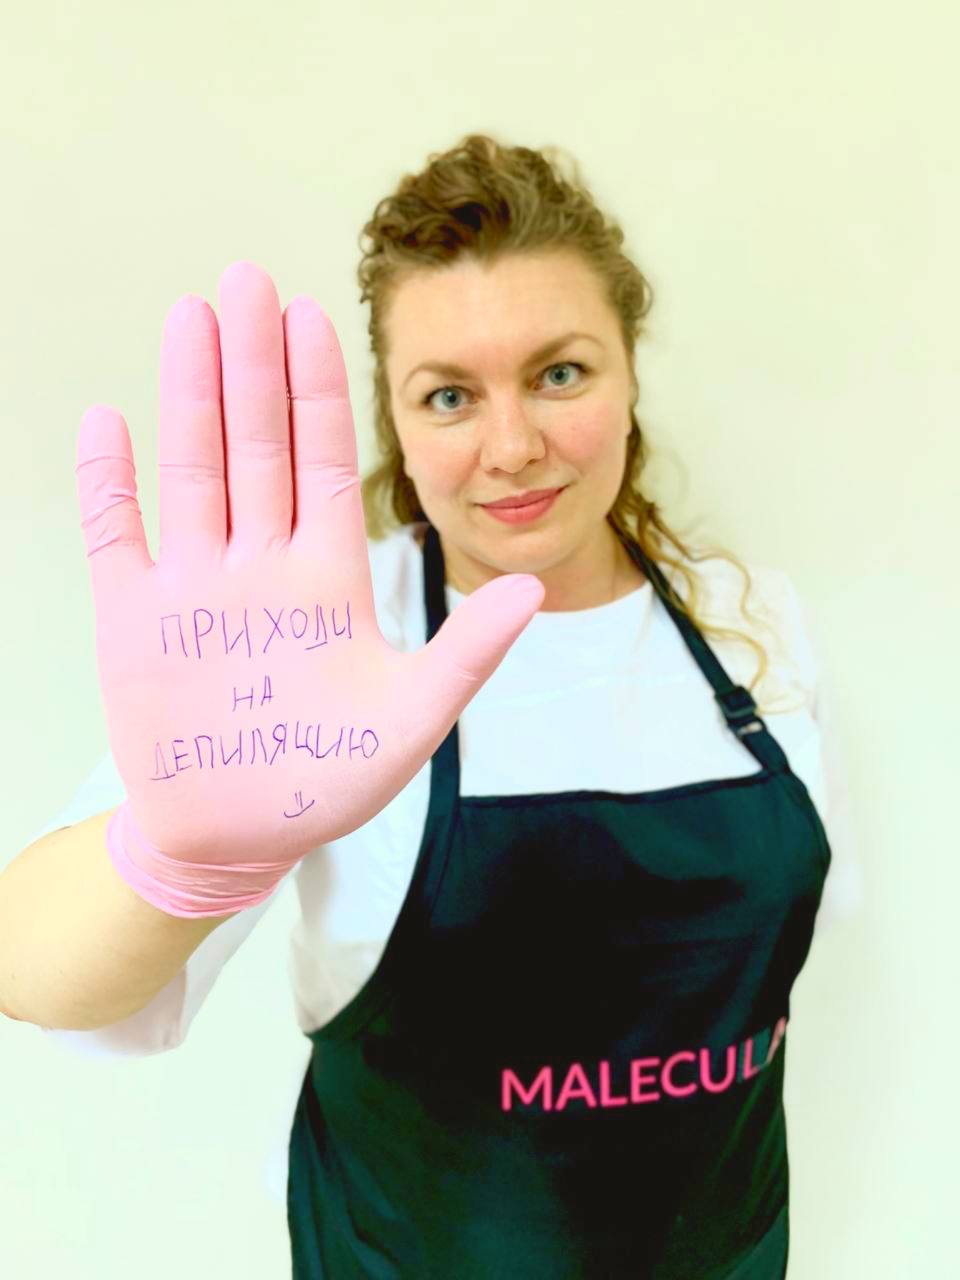 ПРИХОДИ
НА
ДЕПИЛЯЦИЮ
MALECULA